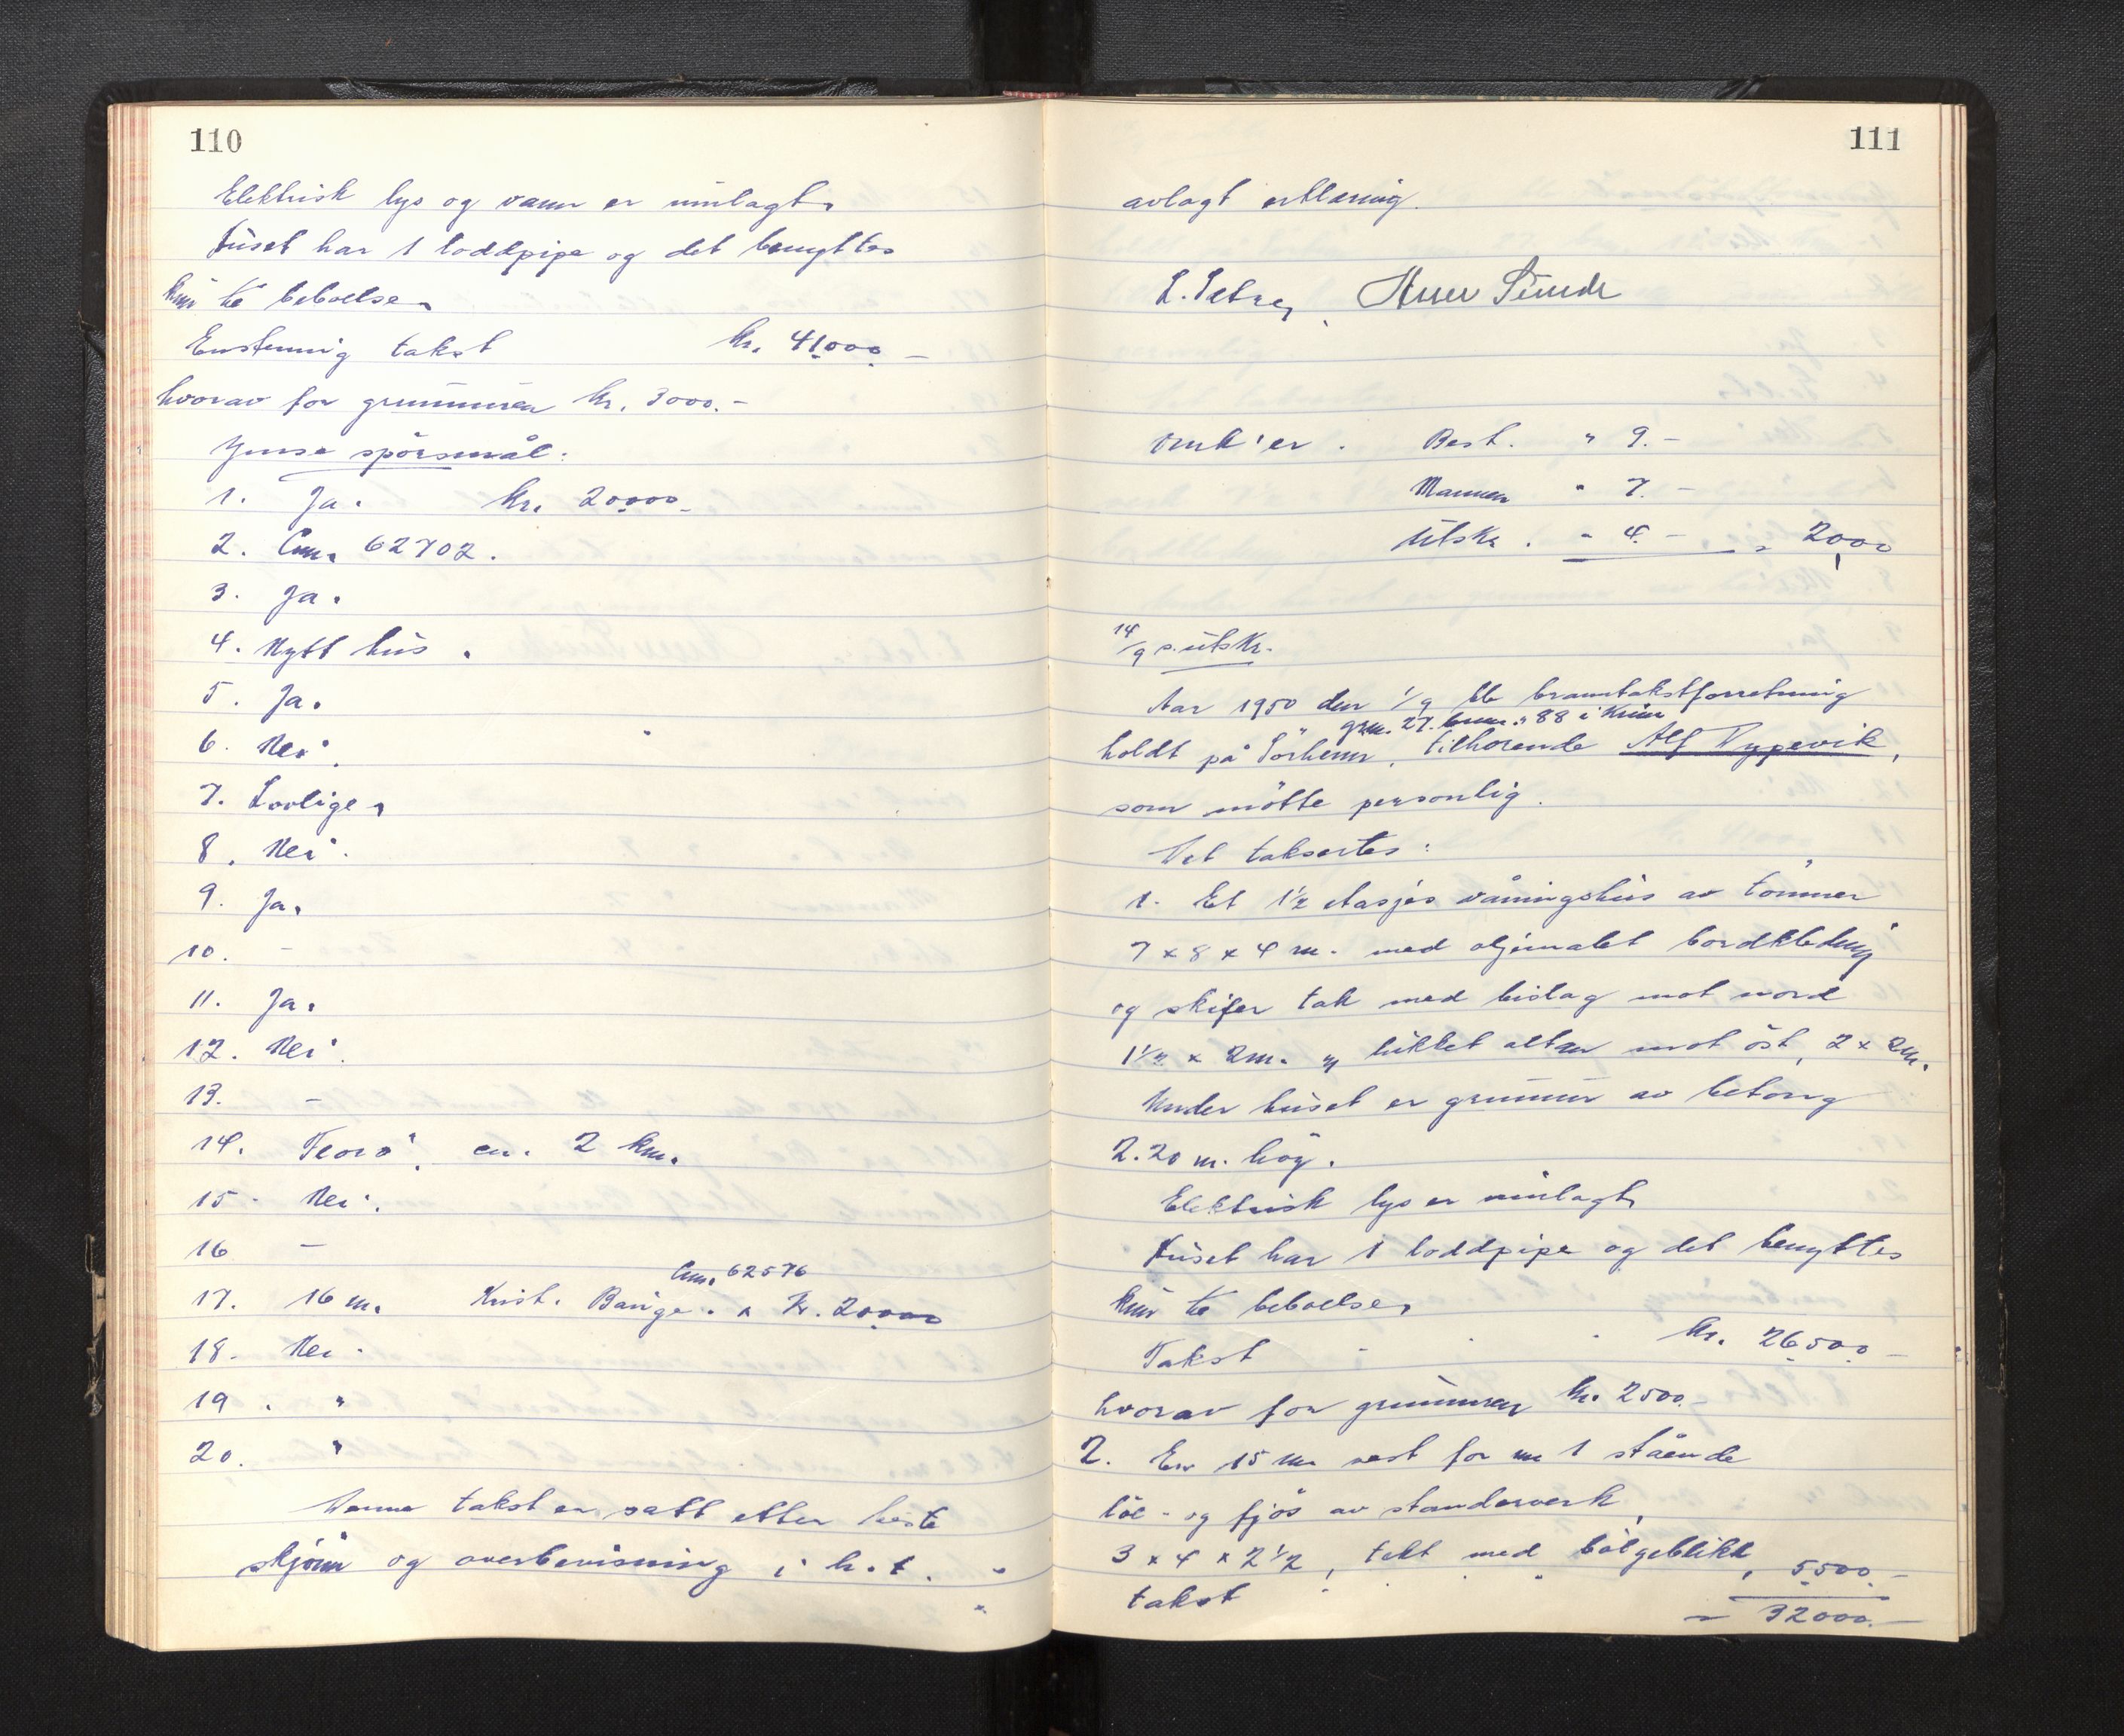 110
Elektrisk lys og vann er innlagt.
Huset har 1 loddpipe og det benyttes
kun til beboelse.
Enstemmig takst kr. 41000.-
hvorav for grunnmuren kr. 3000.-
Ymse spörsmål:
1. Ja. kr. 20000.-
2. Enr. 62702.
3. Ja.
4. Nytt hus.
5. Ja.
6. Nei.
7. Lovlige.
8. Nei.
9. Ja.
10. -
11. Ja.
12. Nei.
13. -
14. Florö, ca. 2 km.
15. Nei.
16. -
Enr. 62576
17. 16 m. Krist. Bauge. " Kr. 20000
18. Nei.
19. "
20. "
Denne takst er satt etter beste
skjönn og overbevisning i h.t.
111
avlagt erklæring.
Omk'er. Best. " 9.-
Mannen " 7.-
Utskr. " 4.- " 20.00
14/9 s. utskr.
Aar 1950 den 1/9 ble branntakstforretning
gnr. 27. bnr. 88 i Kinn
holdt på Sörheim, tilhörende Alf Nypevik,
som mötte personlig.
Det taksertes:
1. Et 1½ etasjes våningshus av tömmer
7 x 8 x 4 m. med oljemalet bordkledning
og skifer tak med bislag mot nord
1½ x 2 m. og lukket altan mot öst, 2 x 2 m.
Under huset er grunnmur av betong
2.20 m. höy.
Elektrisk lys er innlagt.
Huset har 1 loddpipe og det benyttes
kun til beboelse.
Takst kr. 26500.-
hvorav for grunnmuren kr. 2500.-
2. En 15 m vest for nr 1 stående
löe- og fjös av standerverk,
3 x 4 x 2½, tekt med bölgeblikk,
takst " 5500.-
= 32000.-